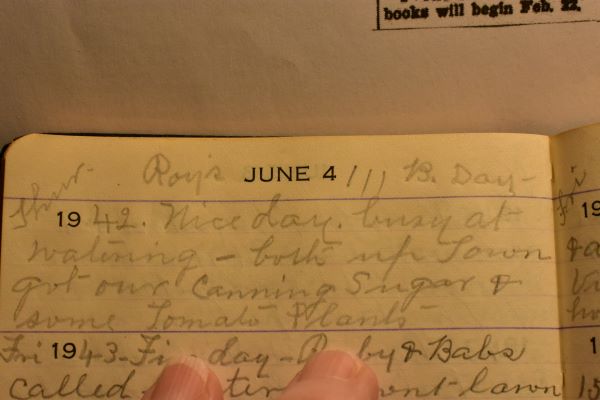 books will begin Feb. 22.
Roy's JUNE 4 111 B. Day-
Thur- 1942. Nice day. busy at
watering - both up Town
got our Canning Sugar &
some Tomato Plants-
Fri 1943- day- & Babs
called lawn